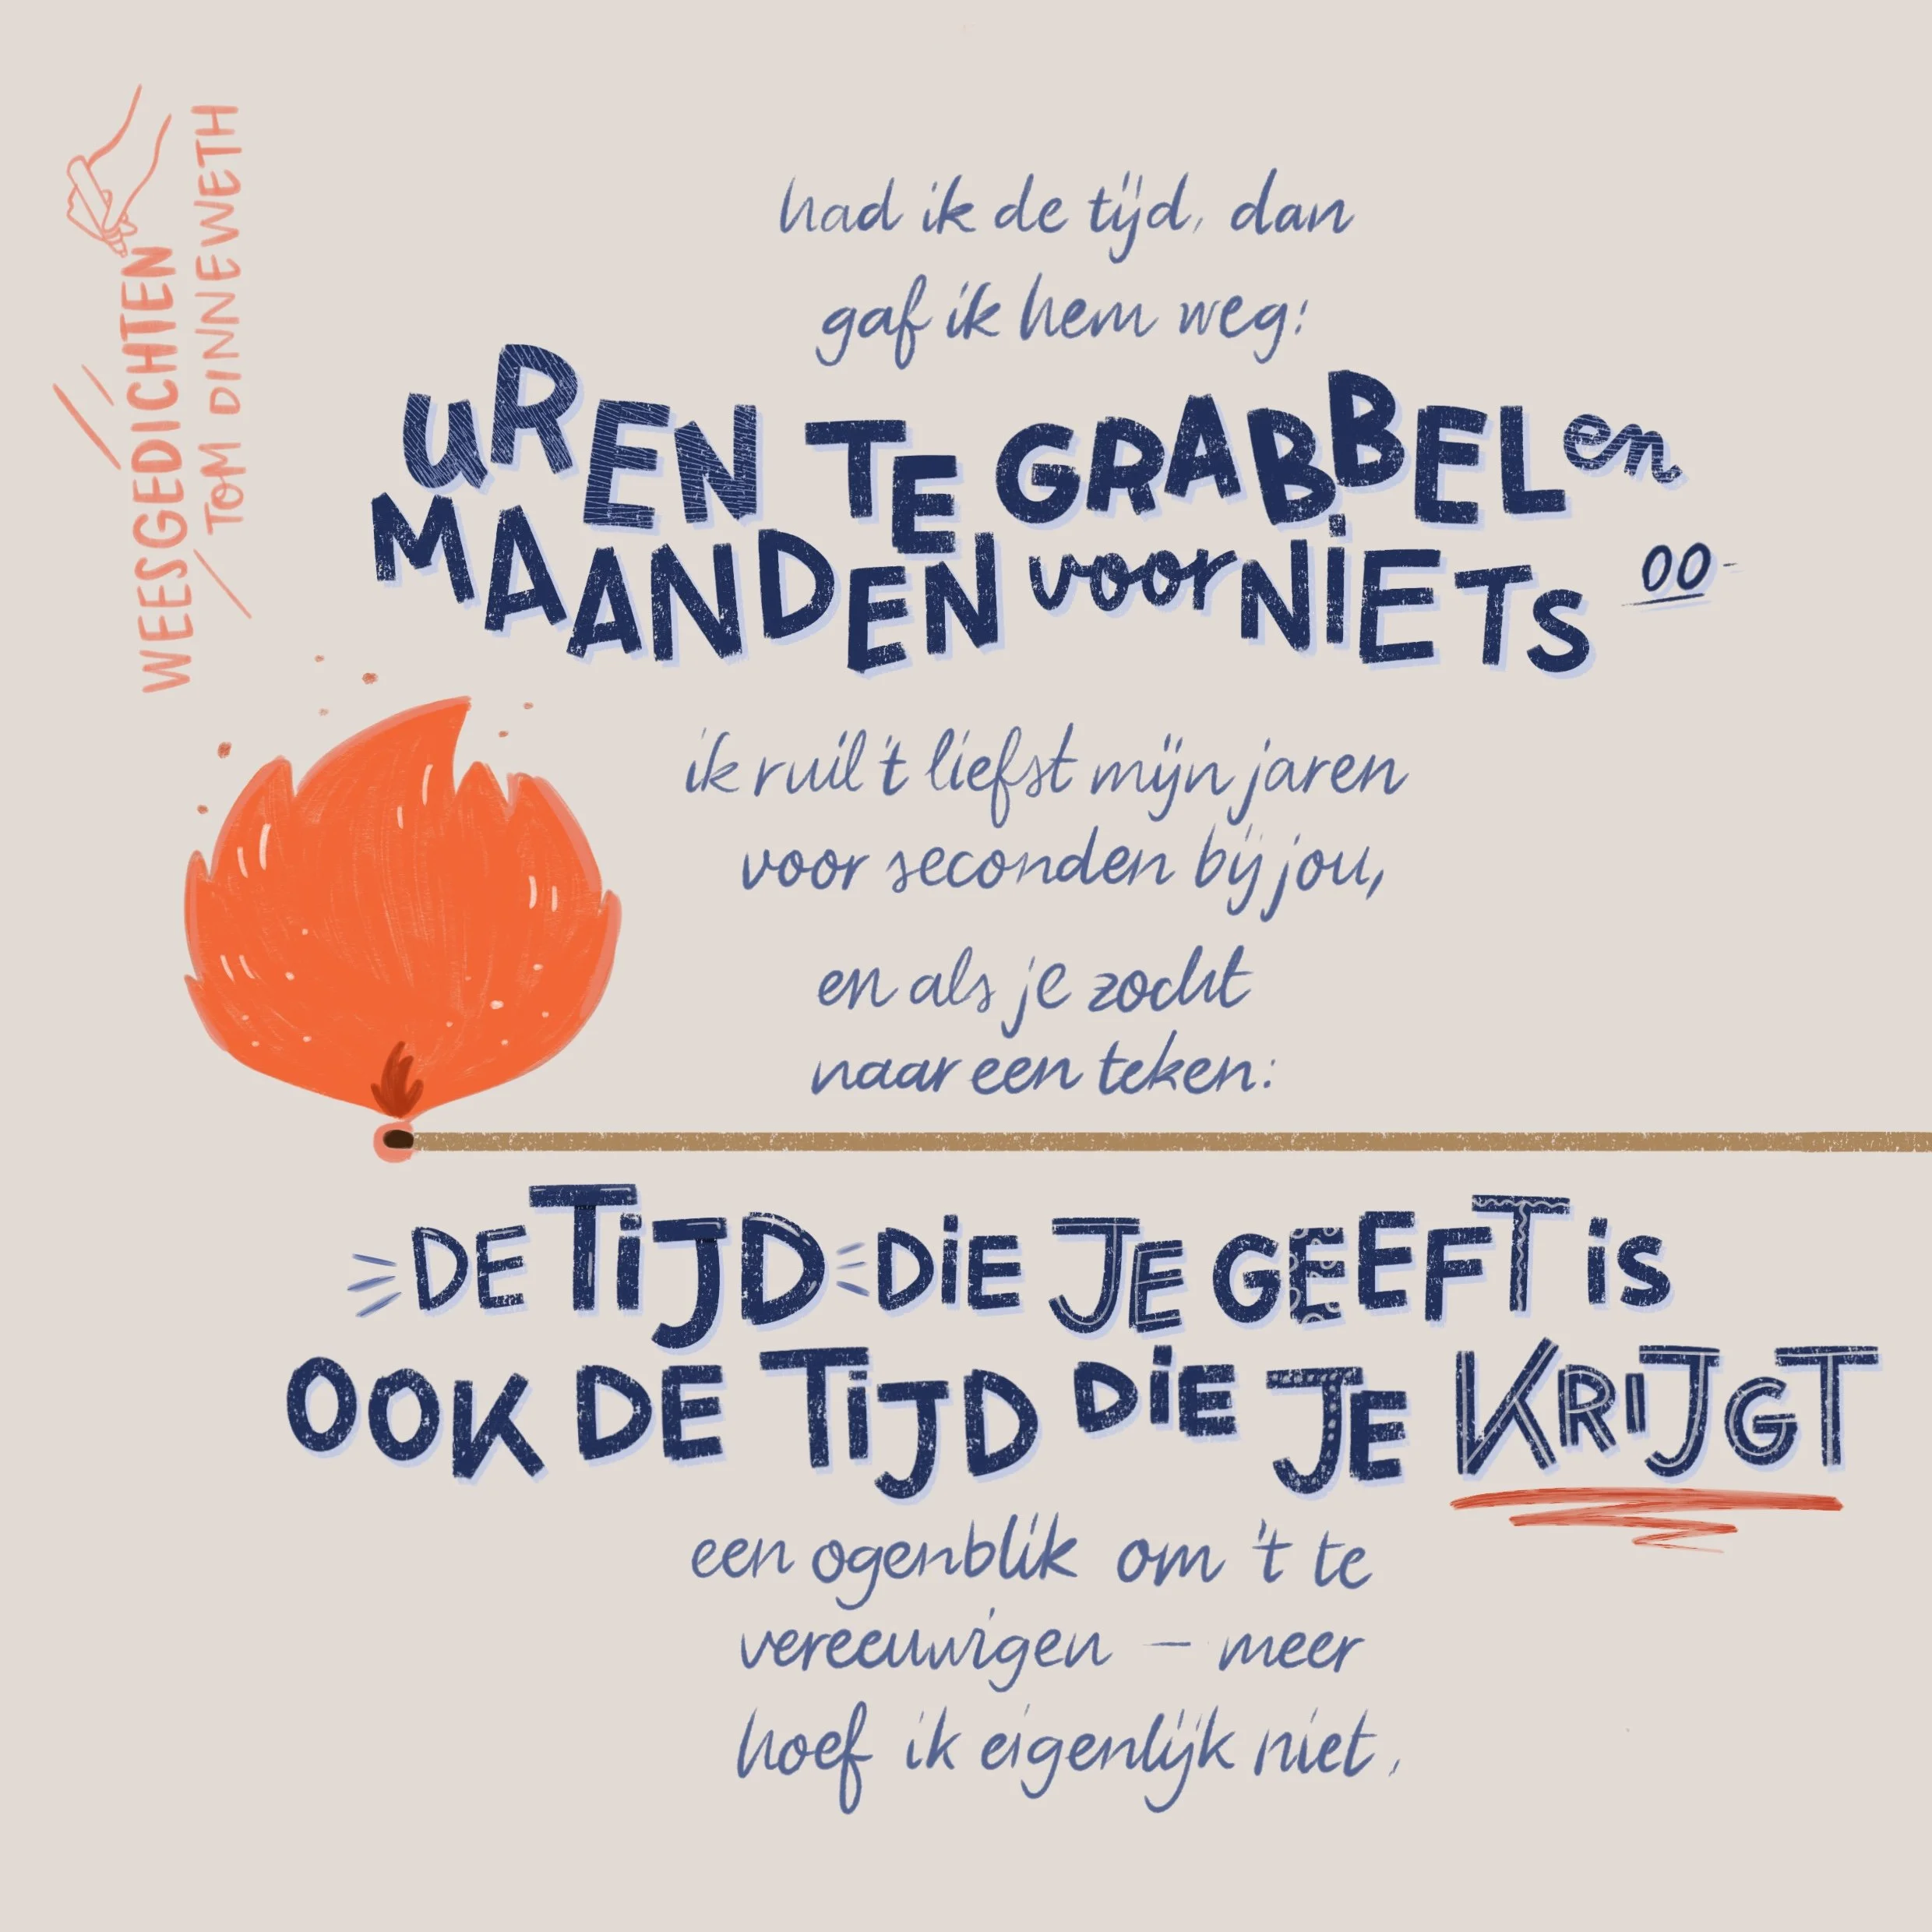 WEESGEDICHTEN
TOM DINNEWETH
had ik de tijd, dan
gaf ik hem weg:
UREN TE GRABBEL en
MAANDEN voor NIETS 00-
ik ruil 't liefst mijn jaren
voor seconden bij jou,
en als je zocht
naar een teken:
DE TIJD DIE JE GEEFT is
OOK DE TIJD DIE JE KRIJGT
een ogenblik om 't te
vereeuwigen – meer
hoef ik eigenlijk niet.